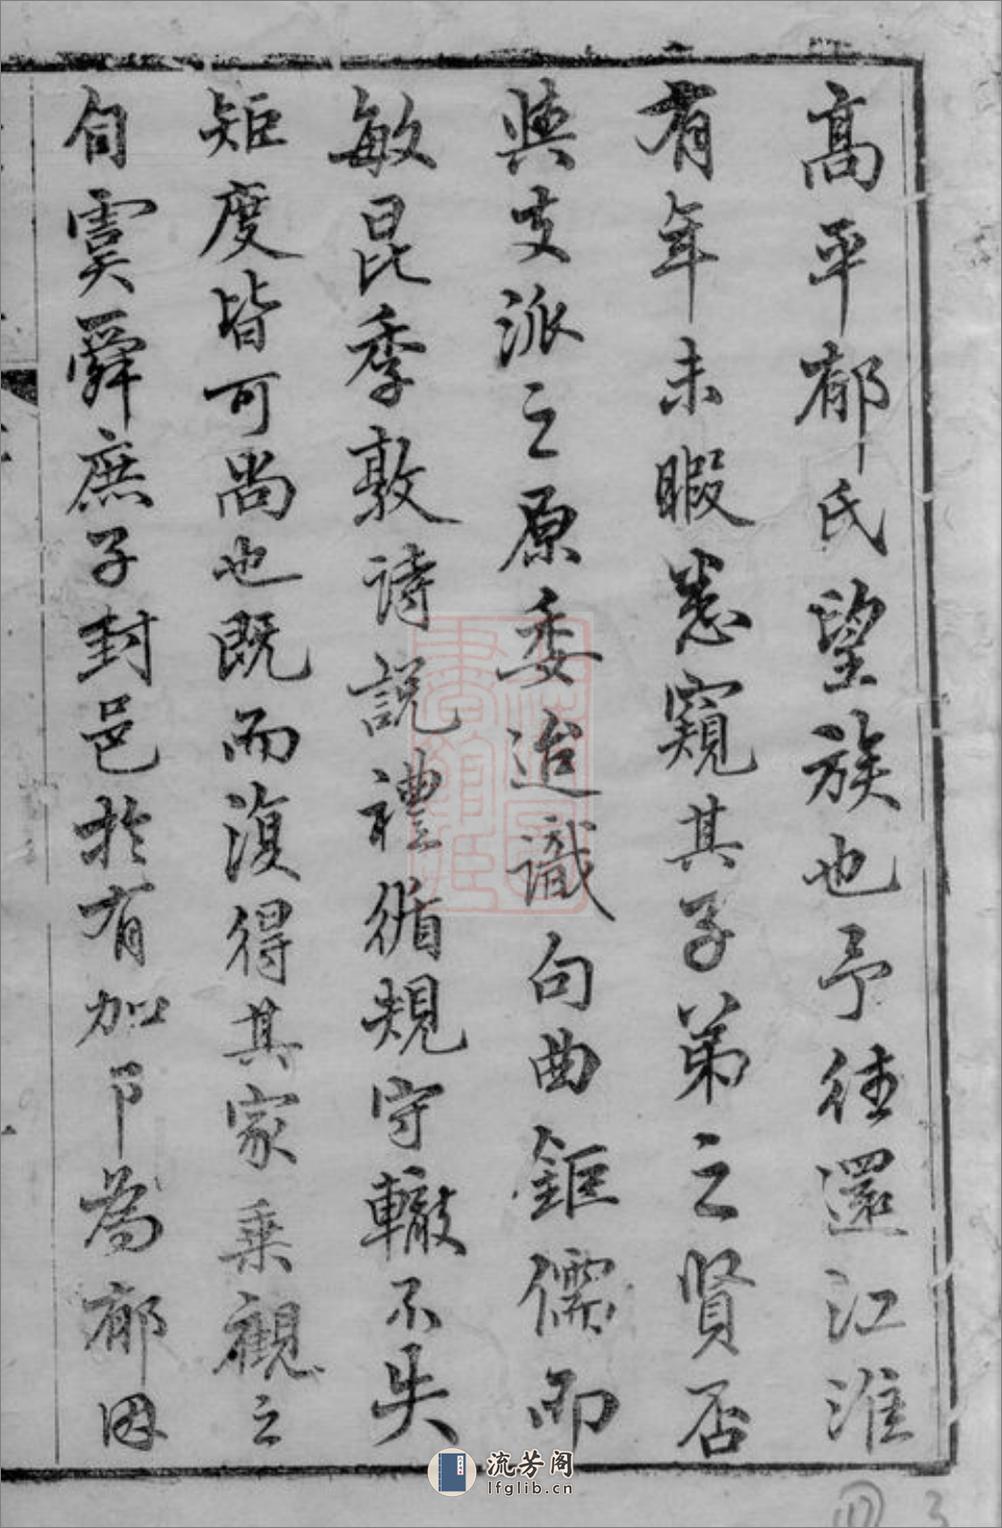 高平郁氏望族也予往還江淮
有年未暇悉窺其子弟之賢否
與支派之原委迨識句曲鉅儒即
敏昆季敦詩說禮循規守轍不失
矩度皆可尚也既而復得其家乘觀之
自虞舜庶子封邑於有加卩為郁因
流芳阁
lfglib.cn
3